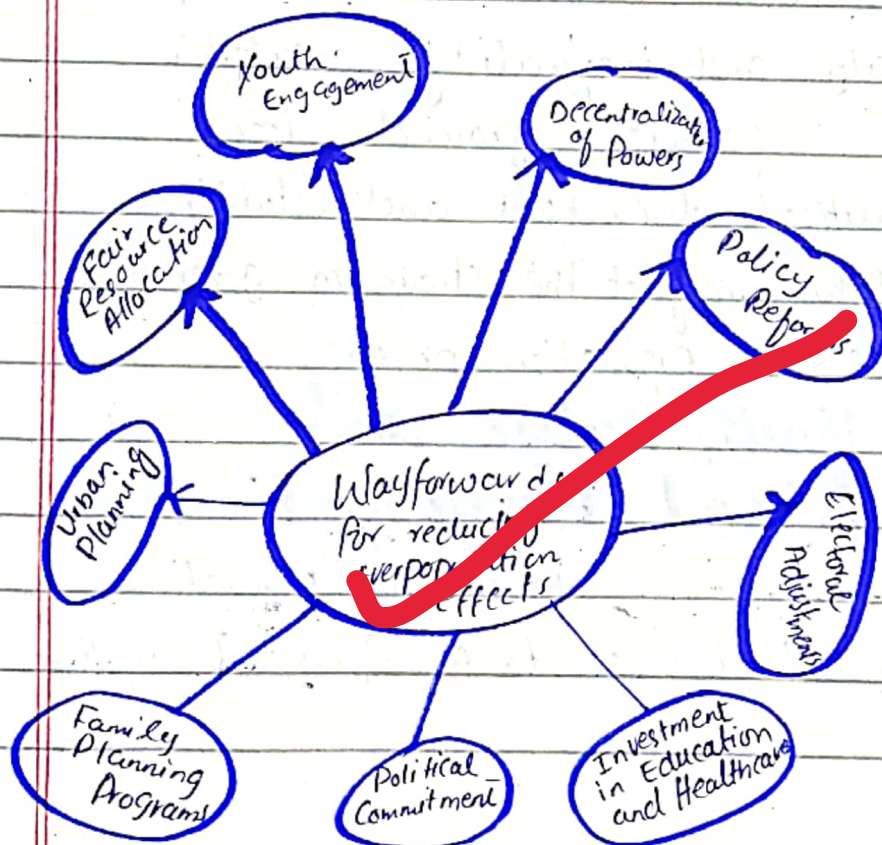 Youth
Engagement
Decentralization
of Powers
Fair
Resource
Allocation
Policy
Reforms
Urban
Planning
Wayforwards
for reducing
overpopulation
effects
Electoral
Adjustments
Family
Planning
Programs
Political
Commitment
Investment
in Education
and Healthcare